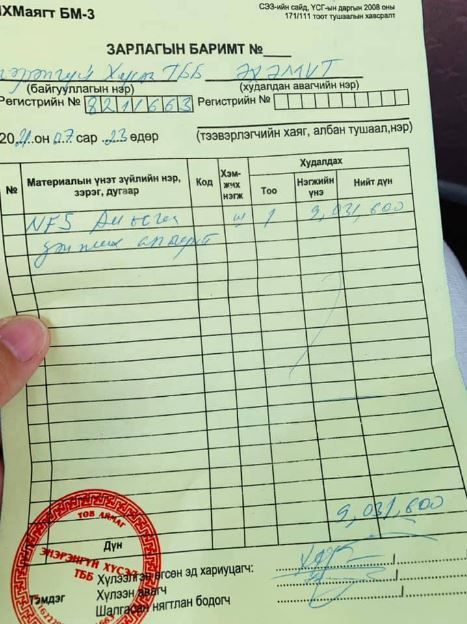 НХМаягт БМ-3
СЭЗ-ийн сайд, ҮСГ-ын даргын 2008 оны
171/111 тоот тушаалын хавсралт
ЗАРЛАГЫН БАРИМТ №
Энэрэнгүй Хүсэл ТББ ЭХЭМҮТ
(байгууллагын нэр) (худалдан авагчийн нэр)
Регистрийн № 8211663 Регистрийн №
2021 он 07 сар 23 өдөр (тээвэрлэгчийн хаяг, албан тушаал, нэр)
№ Материалын үнэт зүйлийн нэр, зэрэг, дугаар Код Хэм-жих нэгж Худалдах
Тоо Нэгжийн үнэ Нийт дүн
NF5 ш 1 9,031,600
9,031,600
Дүн
Хүлээлгэн өгсөн эд хариуцагч:
Тэмдэг Хүлээн авагч
Шалгасан нягтлан бодогч
ТӨВ АЙМАГ
ЭНЭРЭНГҮЙ ХҮСЭЛ
ТББ